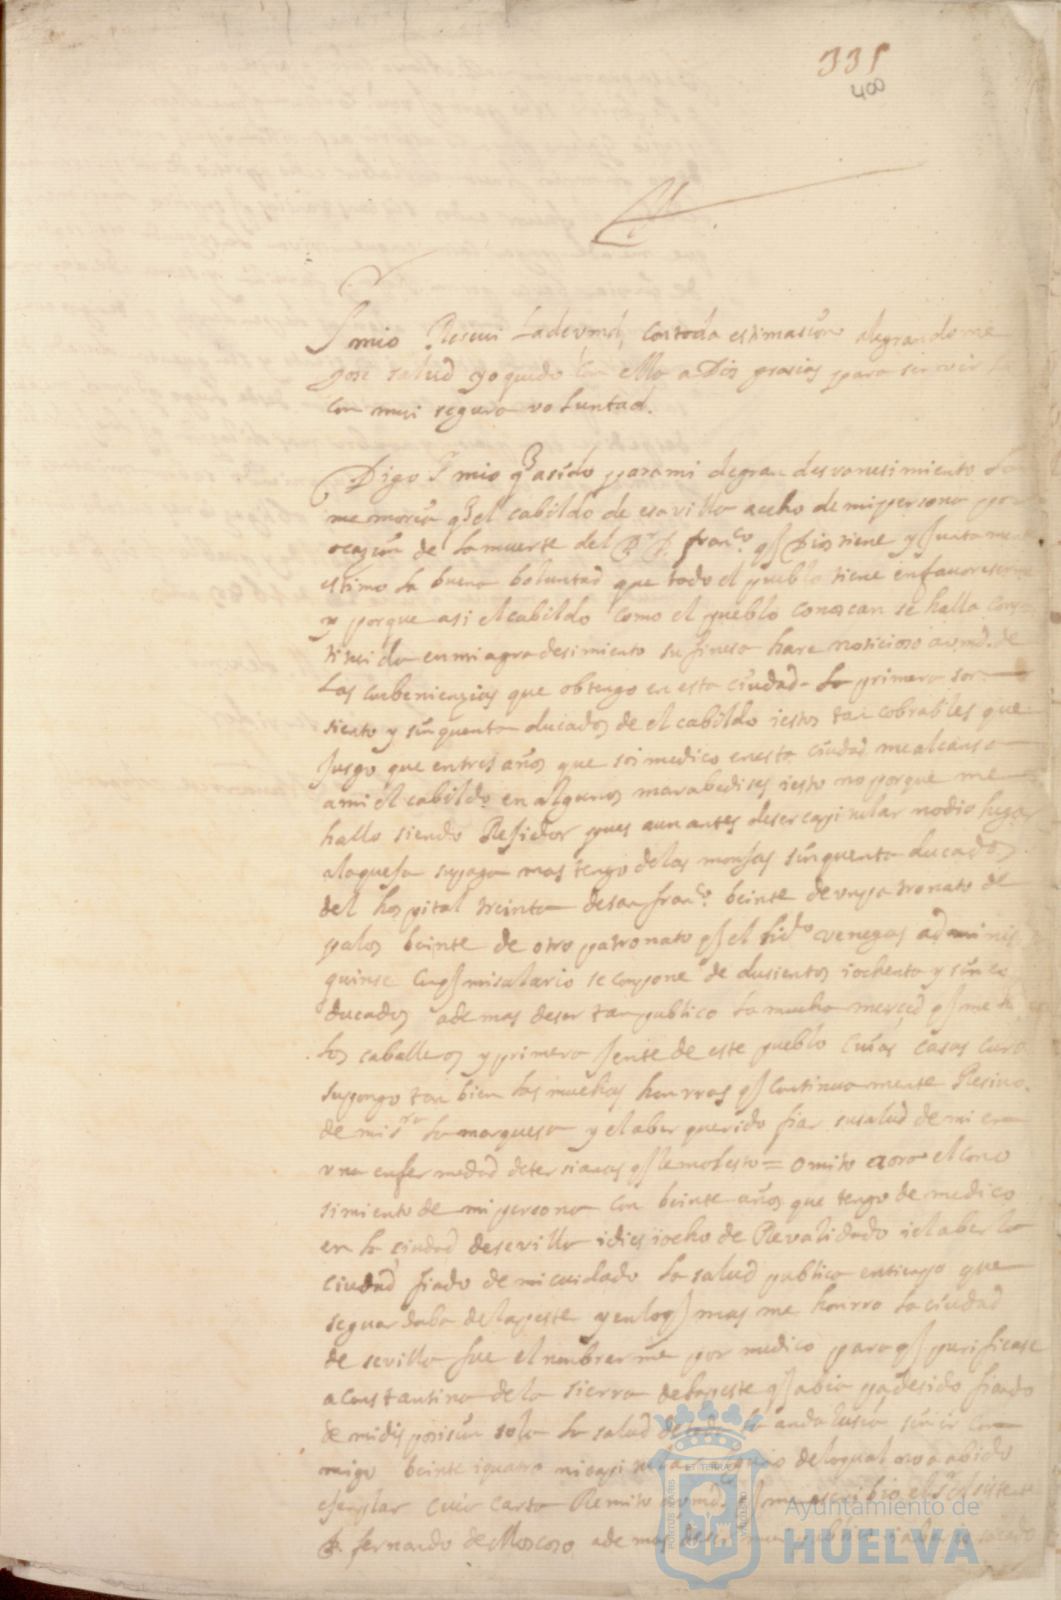 335
400
Sr mio Reseui la de vmd, con toda estimasion alegrandome
gose salud yo quedo con ella a Dios grasias para servir la
con mui segura voluntad.
Digo Sr mio q asido para mi de gran desvanesimiento la
memoria q el cabildo de esa villa a echo de mi persona por
ocazion de la muerte del Dr D. franco q Dios tiene y juntamente
estimo la buena boluntad que todo el pueblo tiene en fauoreserme
y porque asi el cabildo como el pueblo conoscan se halla cons
tituida en mi agradesimiento su finesa hare notisioso a vmd. de
las conbenienzias que obtengo en esta ciudad. la primera son
siento y sinquenta ducados de el cabildo i estos tan cobrables que
jusgo que en tres años que soi medico en esta ciudad me alcansa
a mi el cabildo en algunos marabedises i esto no porque me
hallo siendo Rejidor pues aun antes de ser capitular no dio lugar
a la quexa su paga mas tengo de las monjas sinquenta ducados
del hospital treinta de san franco. beinte de un patronato de
palos beinte de otro patronato q el lizdo venegas adminis
quinse con q mi salario se compone de dusientos i ochenta y sinco
ducados ademas de ser tan publico la mucha merced q me ha
los caballeros y primera jente de este pueblo cuias casas curo
supongo tan bien las muchas honrras q continuamente Resiuo
de mi sra la marquesa y el aber querido fiar su salud de mi en
una enfermedad de tersianas q le molesto = omito aora el cono
simiento de mi persona con beinte años que tengo de medico
en la ciudad de sevilla i dies i ocho de Revalidado i el aber la
ciudad fiado de mi cuidado la salud publica en tienpo que
se guardaba de la peste y en lo q mas me honrra la ciudad
de sevilla fue el nonbrarme por medico para q purificase
a constantina de la sierra de la peste q abia padesido fiando
de mi disposision sola la salud de toda la andalusia sin ir con
migo beinte i quatro ni capitular ninguno de lo qual no a abido
ejenplar cuia carta Remito a vmd. q me escribio el Sr Asistente
D. fernando de Moscoso ademas de
Ayuntamiento de
HUELVA